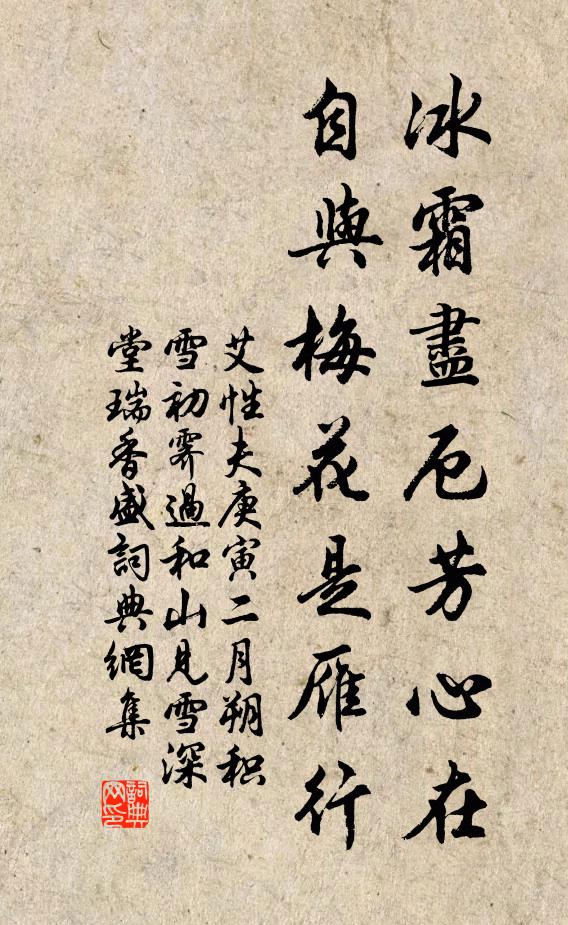 冰霜盡厄芳心在
自與梅花是雁行
艾性夫庚寅二月朔积
雪初霽過和山見雪深
堂瑞香盛詞典網集
詞典
网印